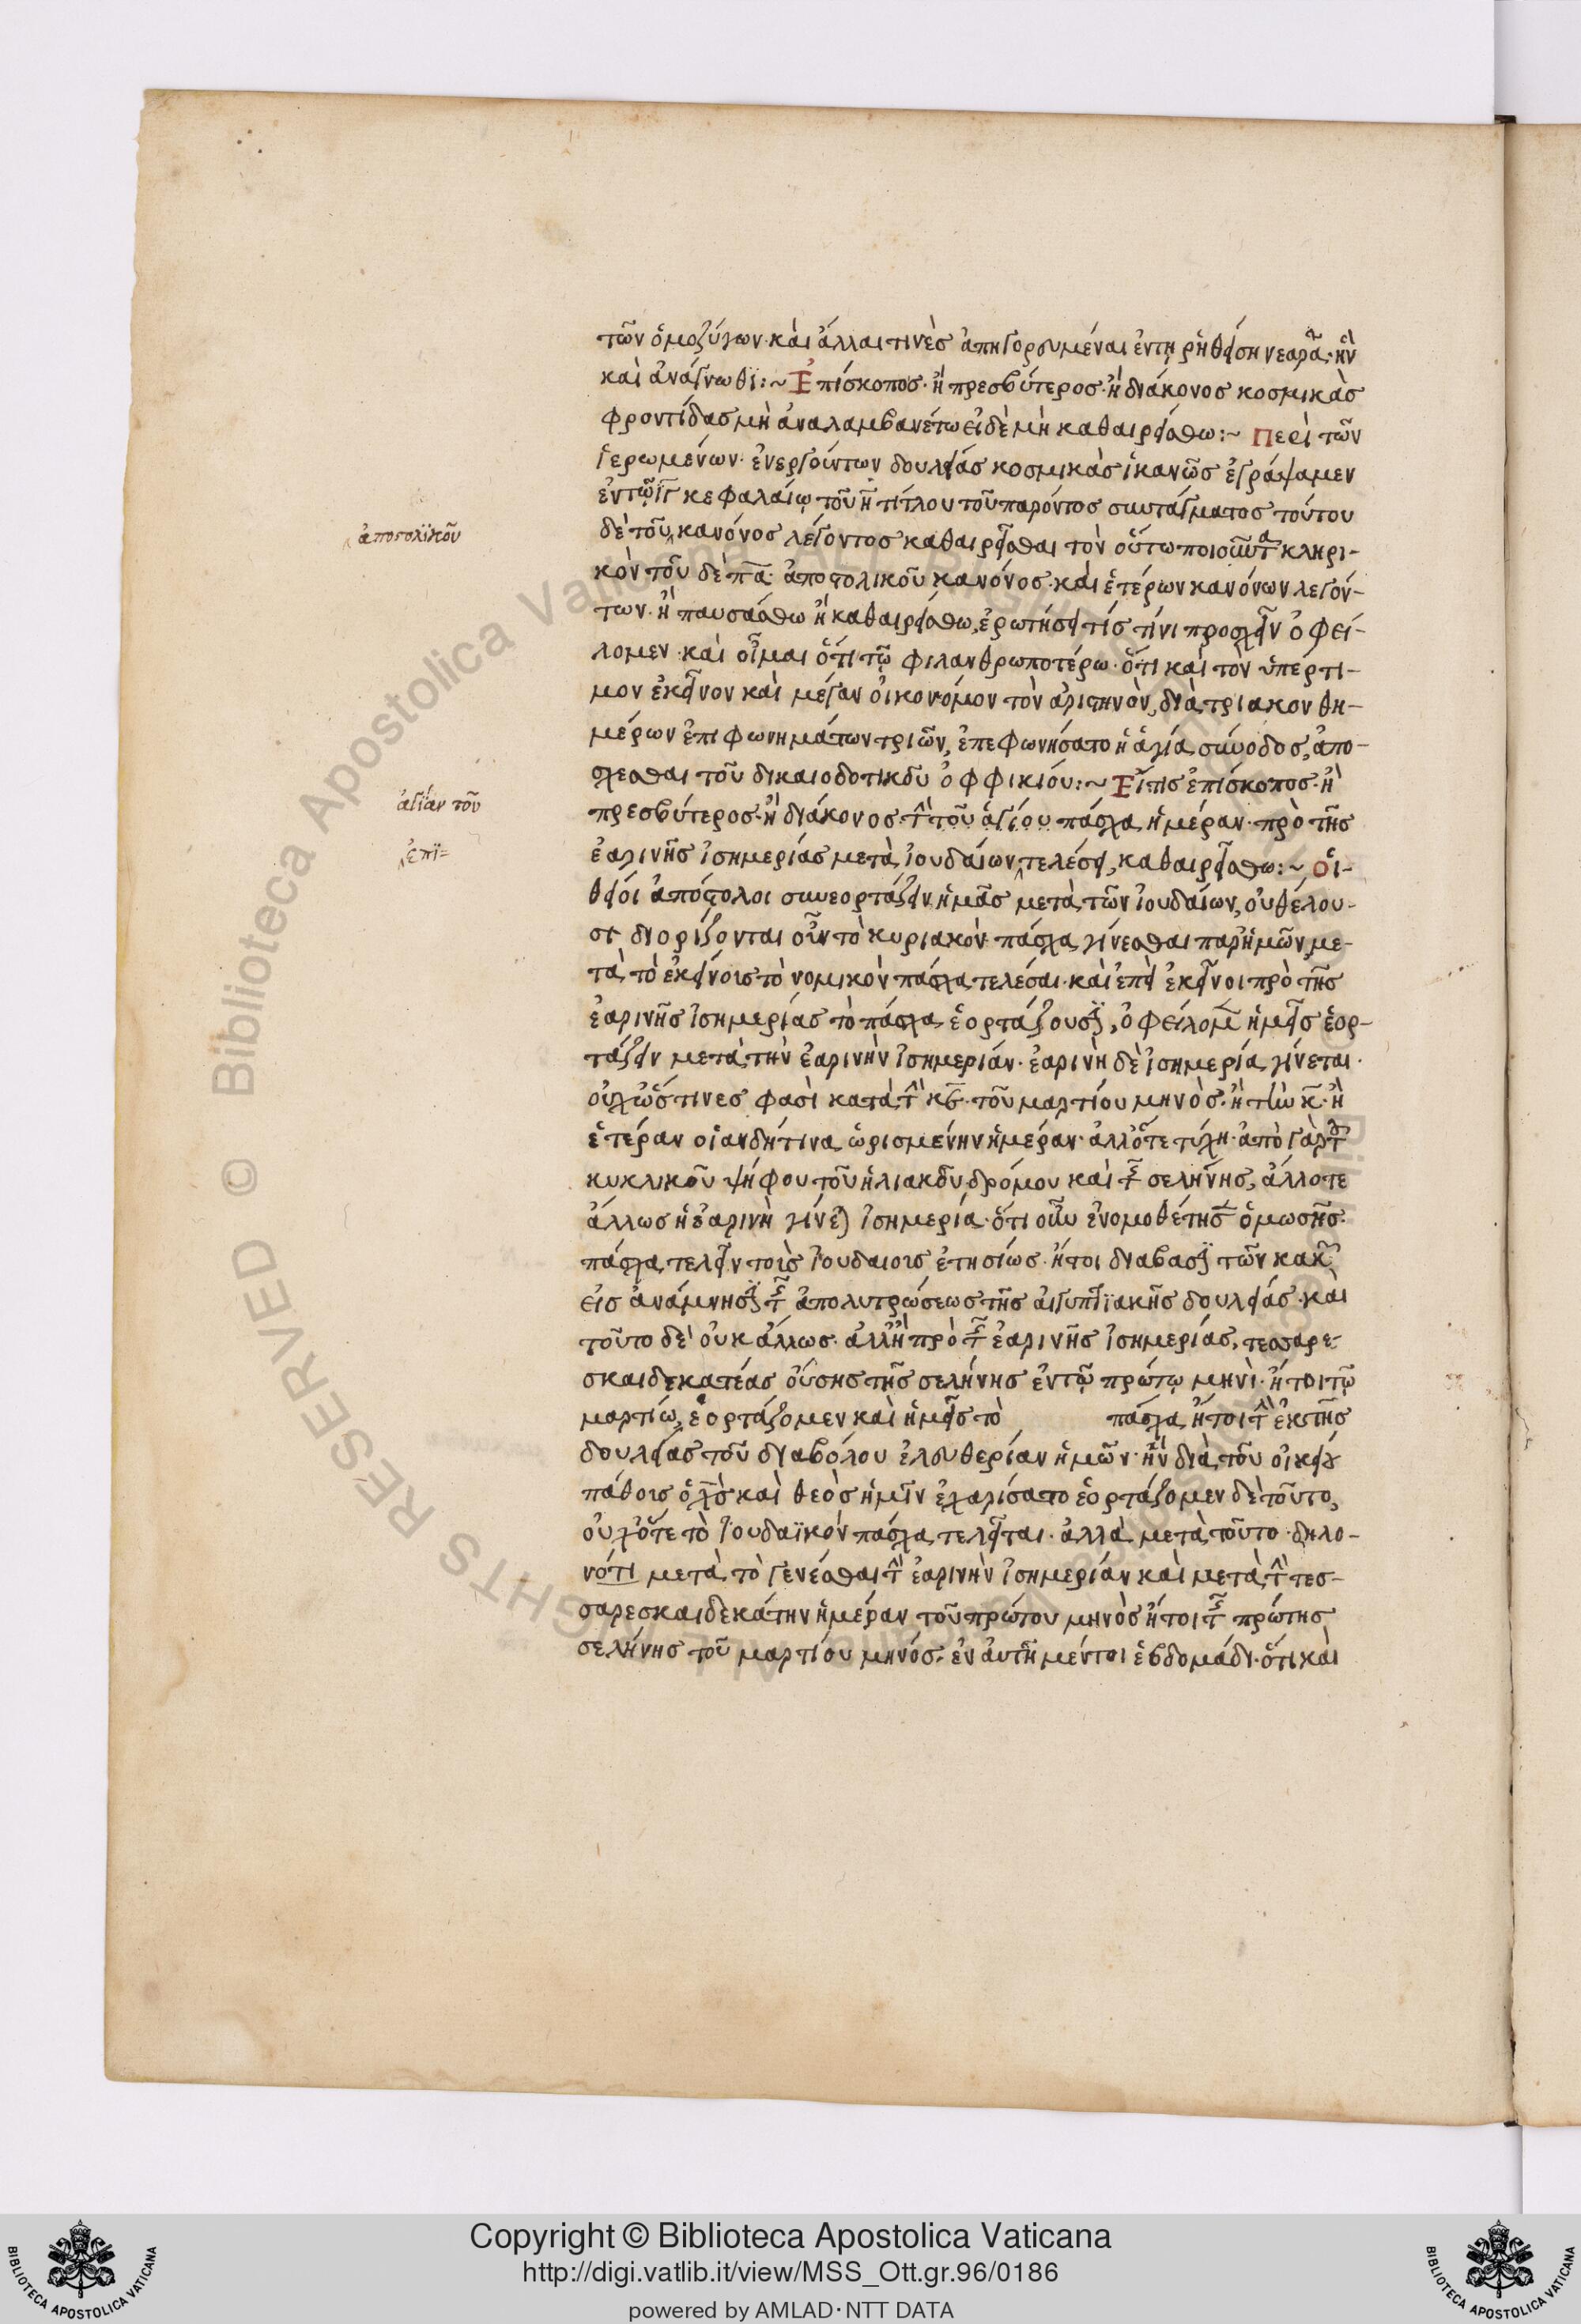 τῶν ὁμοζύγων· καὶ ἄλλαι τινὲς ἀπηγορευμέναι ἐν τῇ ῥηθείσῃ νεαρᾷ· ἣν
καὶ ἀνάγνωθϊ :~ Ἐπίσκοπος· ἢ πρεσβύτερος· ἢ διάκονος κοσμικὰς
φροντίδας μὴ ἀναλαμβανέτω εἰ δὲ μὴ καθαιρείσθω :~ Περὶ τῶν
ἱερωμένων· ἐνεργούντων δουλείας κοσμικὰς ἱκανῶς ἐγράψαμεν
ἐν τῷ ιγ κεφαλαίῳ τοῦ η τίτλου τοῦ παρόντος συντάγματος τούτου
ἀποστολϊκοῦ
δὲ τοῦ κανόνος λέγοντος καθαιρεῖσθαι τὸν οὕτω ποιοῦντα κληρι-
κὸν τοῦ δὲ πα ἀποστολικοῦ κανόνος· καὶ ἑτέρων κανόνων λεγόν-
των· ἢ παυσάσθω ἢ καθαιρείσθω, ἐρωτήσει τίς τίνι προσχεῖν ὀφεί-
λομεν· καὶ οἶμαι ὅτι τῷ φιλανθρωποτέρω· ὅτι καὶ τὸν ὑπέρτι-
μον ἐκεῖνον καὶ μέγαν οἰκονόμον τὸν ἀριστηνὸν, διὰ τριακονθη-
μέρων ἐπιφωνημάτων τριῶν, ἐπεφωνήσατο ἡ ἁγία σύνοδος, ἀπο-
σχέσθαι τοῦ δικαιοδοτικοῦ ὀφφικίου :~ Εἴ τις ἐπίσκοπος· ἢ
ἁγίαν τοῦ
πρεσβύτερος· ἢ διάκονος· τὴν τοῦ ἁγίου πάσχα ἡμέραν· πρὸ τῆς
ἐπϊ=
ἐαρινῆς ἰσημερίας μετὰ ἰουδαίων τελέσει, καθαιρείσθω :~ Οἱ
θεῖοι ἀπόστολοι συνεορτάζειν ἡμᾶς μετὰ τῶν ἰουδαίων, οὐ θέλου-
σι διορίζονται οὖν τὸ κυριακὸν πάσχα γίνεσθαι παρ' ἡμῶν, με-
τὰ τὸ ἐκείνοις τὸ νομικὸν πάσχα τελέσαι· καὶ ἐπεὶ ἐκεῖνοι πρὸ τῆς
ἐαρινῆς ἰσημερίας τὸ πάσχα ἑορτάζουσϊ, ὀφείλομεν ἡμεῖς ἑορ-
τάζειν μετὰ τὴν ἐαρινὴν ἰσημερίαν· ἐαρινὴ δὲ ἰσημερία γίνεται·
οὐχ ὥς τινες φασὶ κατὰ τὴν κε· τοῦ μαρτίου μηνὸς· ἢ τὴν κ· ἢ
ἑτέραν οἱανδήτινα ὡρισμένην ἡμέραν· ἀλλ' ὅτε τύχη· ἀπὸ γὰρ τοῦ
κυκλικοῦ ψήφου τοῦ ἡλιακοῦ δρόμου καὶ τῆς σελήνης, ἄλλοτε
ἄλλως ἡ ἐαρινὴ γίνεται ἰσημερία· ὅτι οὖν ἐνομοθετήσ
πάσχα τελεῖν τοῖς ἰουδαιοις ἐτησίως· ἤτοι διαβασϊ τῶν κακῶν
εἰς ἀνάμνησϊν τῆς ἀπολυτρώσεως τῆς αἰγυπτϊακῆς δουλείας· καὶ
τοῦτο δὲ οὐκ ἄλλως· ἀλλ' ἢ πρὸ τῆς ἐαρινῆς ἰσημερίας, τεσσαρε-
σκαιδεκατέας οὔσης τῆς σελήνης ἐν τῷ πρώτῳ μηνὶ· ἤτοι τῷ
μαρτίω, ἑορτάζομεν καὶ ἡμεῖς τὸ πάσχα ἤτοι τὴν ἐκ τῆς
δουλείας τοῦ διαβόλου ἐλευθερίαν ἡμῶν· ἣν διὰ τοῦ οἰκείου
πάθοις ὁ χς καὶ θεὸς ἡμῖν ἐχαρίσατο ἑορτάζομεν δὲ τοῦτο,
οὐχ ὅτε τὸ ἰουδαϊκὸν πάσχα τελεῖται· ἀλλὰ μετὰ τοῦτο· δηλο-
νότι μετὰ τὸ γενέσθαι τὴν ἐαρινὴν ἰσημερίαν καὶ μετὰ τὴν τεσ-
σαρεσκαιδεκάτην ἡμέραν τοῦ πρώτου μηνὸς ἤτοι τῆς πρώτης
σελήνης τοῦ μαρτίου μηνός· ἐν αὐτῇ μέντοι ἑβδομάδι· ὅτι καὶ
Copyright © Biblioteca Apostolica Vaticana
http://digi.vatlib.it/view/MSS_Ott.gr.96/0186
powered by AMLAD·NTT DATA